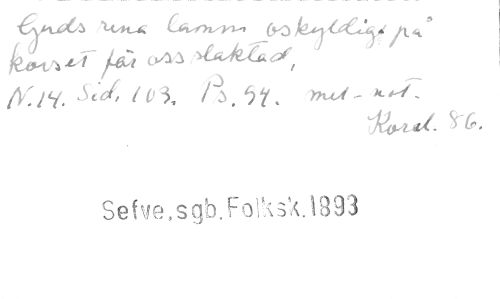 Guds rena lamm oskyldig på
korset för oss slaktad,
N.14. Sid. 103. Ps. 94. mel-not.
Koral. 86.
Sefve, sgb. Folksk. 1893